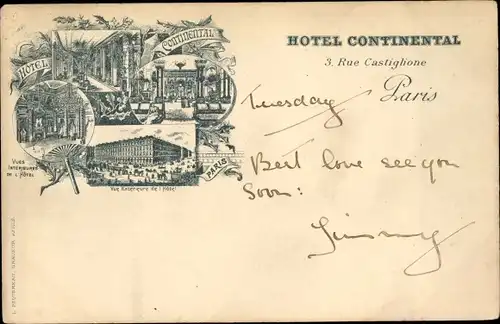 HOTEL CONTINENTAL
HOTEL CONTINENTAL
3. Rue Castiglione
Paris
VUES
INTERIEURES
DE L'HÔTEL
Vue Extérieure de l'Hôtel
PARIS
Tuesday
Best love see you
soon:
Jimmy